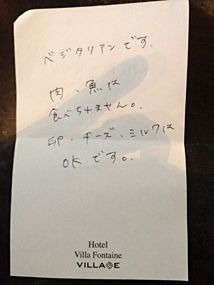 ベジタリアンです。
肉・魚は
食べちれません。
卵・チーズ・ミルクは
OKです。
Hotel
Villa Fontaine
VILLAGE